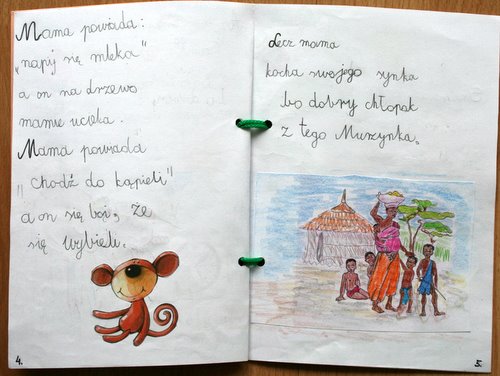 Mama powiada:
„napij się mleka"
a on na drzewo
mamie ucieka.
Mama powiada
"chodź do kąpieli"
a on się boi, że
się wybieli.
4.
Lecz mama
kocha swojego synka
bo dobry chłopak
z tego Murzynka.
5.